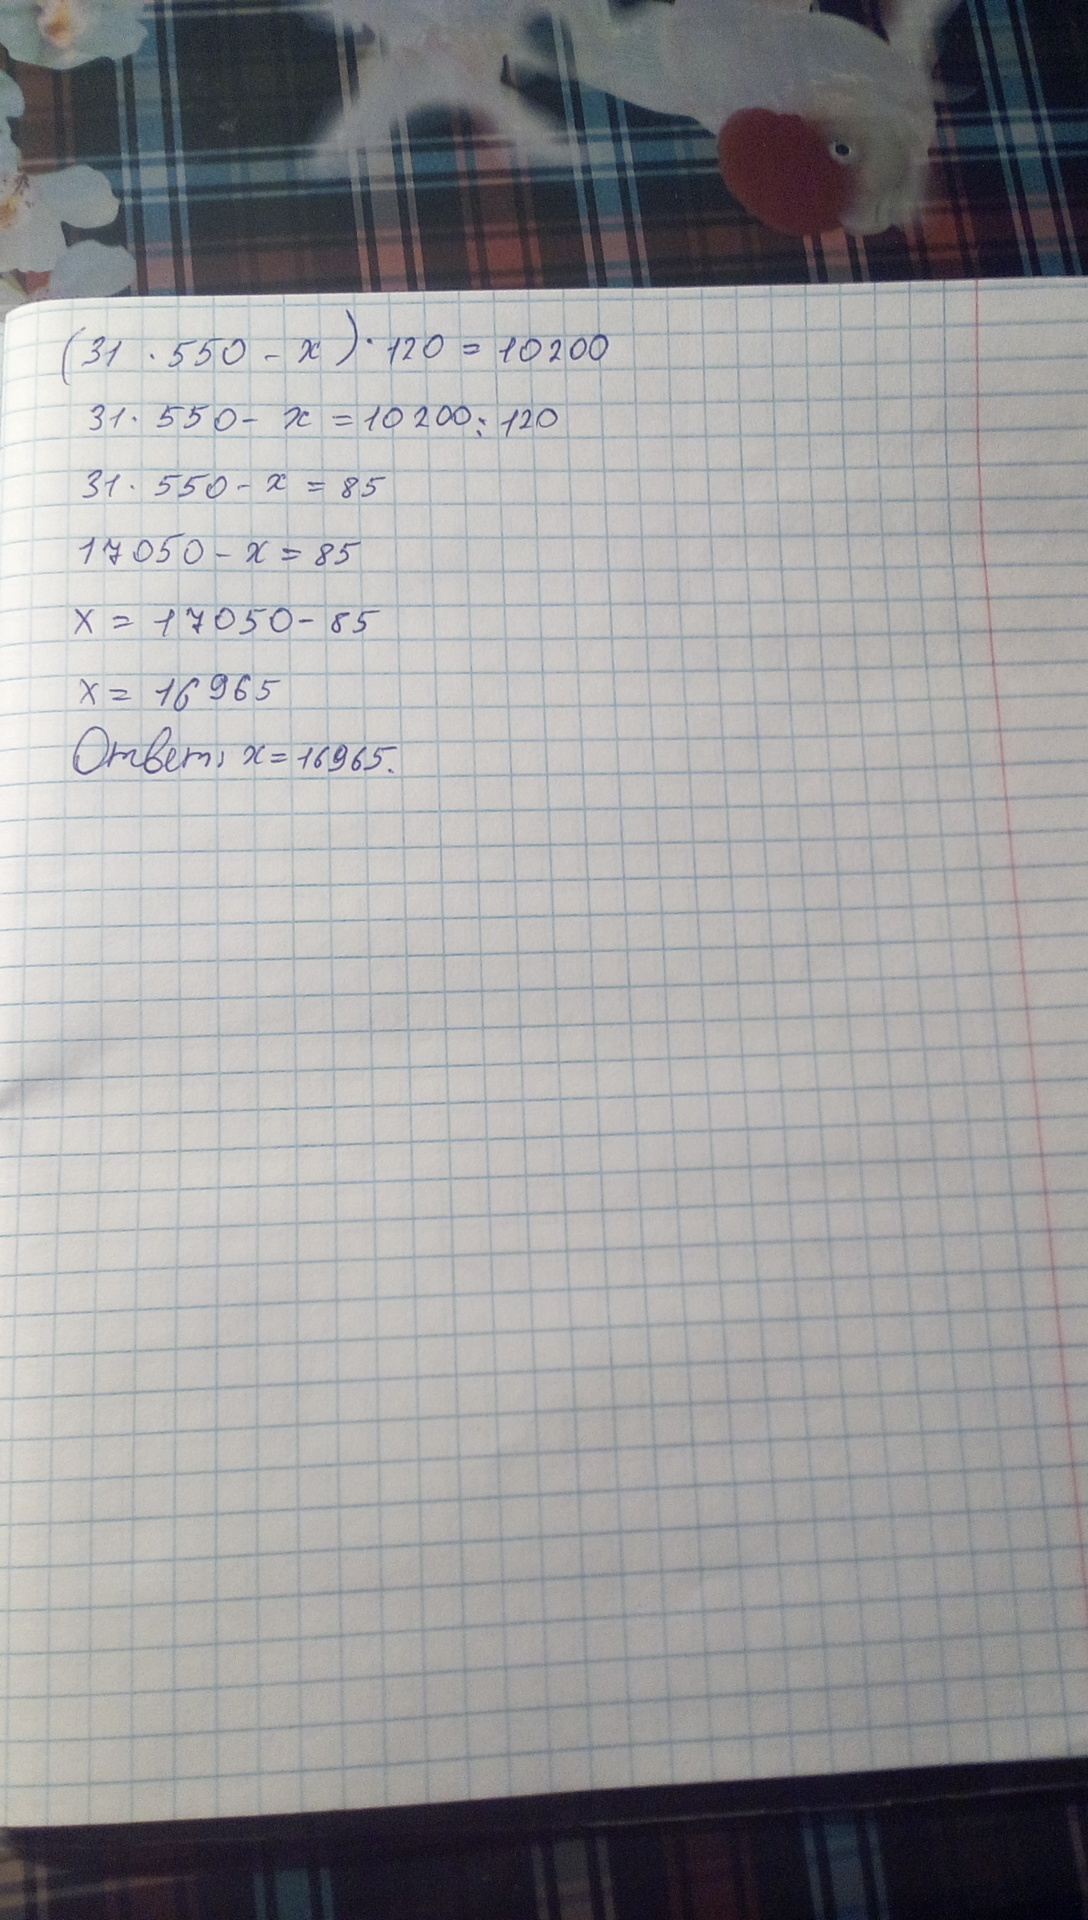 (31 · 550 - x) · 120 = 10200
31 · 550 - x = 10200 : 120
31 · 550 - x = 85
17050 - x = 85
x = 17050 - 85
x = 16965
Ответ: x = 16965.